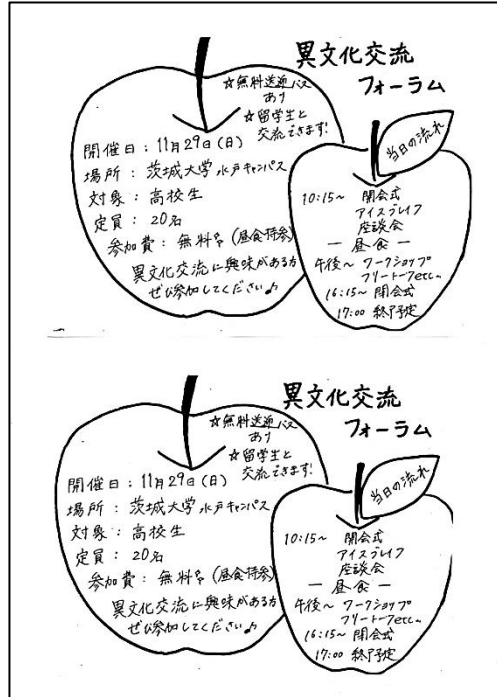 異文化交流
フォーラム
☆無料送迎バス
あり
☆留学生と
交流できます!
開催日：11月29日(日)
場所：茨城大学水戸キャンパス
対象：高校生
定員：20名
参加費：無料♪(昼食持参)
異文化交流に興味がある方
ぜひ参加してください♪
当日の流れ
10:15～ 開会式
アイスブレイク
座談会
― 昼食 ―
午後～ ワークショップ
フリートークetc...
16:15～ 閉会式
17:00 終了予定
異文化交流
フォーラム
☆無料送迎バス
あり
☆留学生と
交流できます!
開催日：11月29日(日)
場所：茨城大学水戸キャンパス
対象：高校生
定員：20名
参加費：無料♪(昼食持参)
異文化交流に興味がある方
ぜひ参加してください♪
当日の流れ
10:15～ 開会式
アイスブレイク
座談会
― 昼食 ―
午後～ ワークショップ
フリートークetc...
16:15～ 閉会式
17:00 終了予定